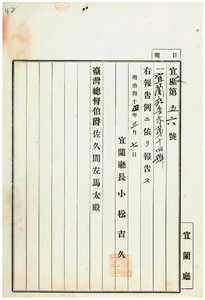 報
日
宜廳第五六號
一宜蘭
右報告例ニ依リ報告ス
明治四十四年三月七日
宜蘭廳長 小松吉久
臺灣總督伯爵佐久間左馬太殿
宜蘭廳